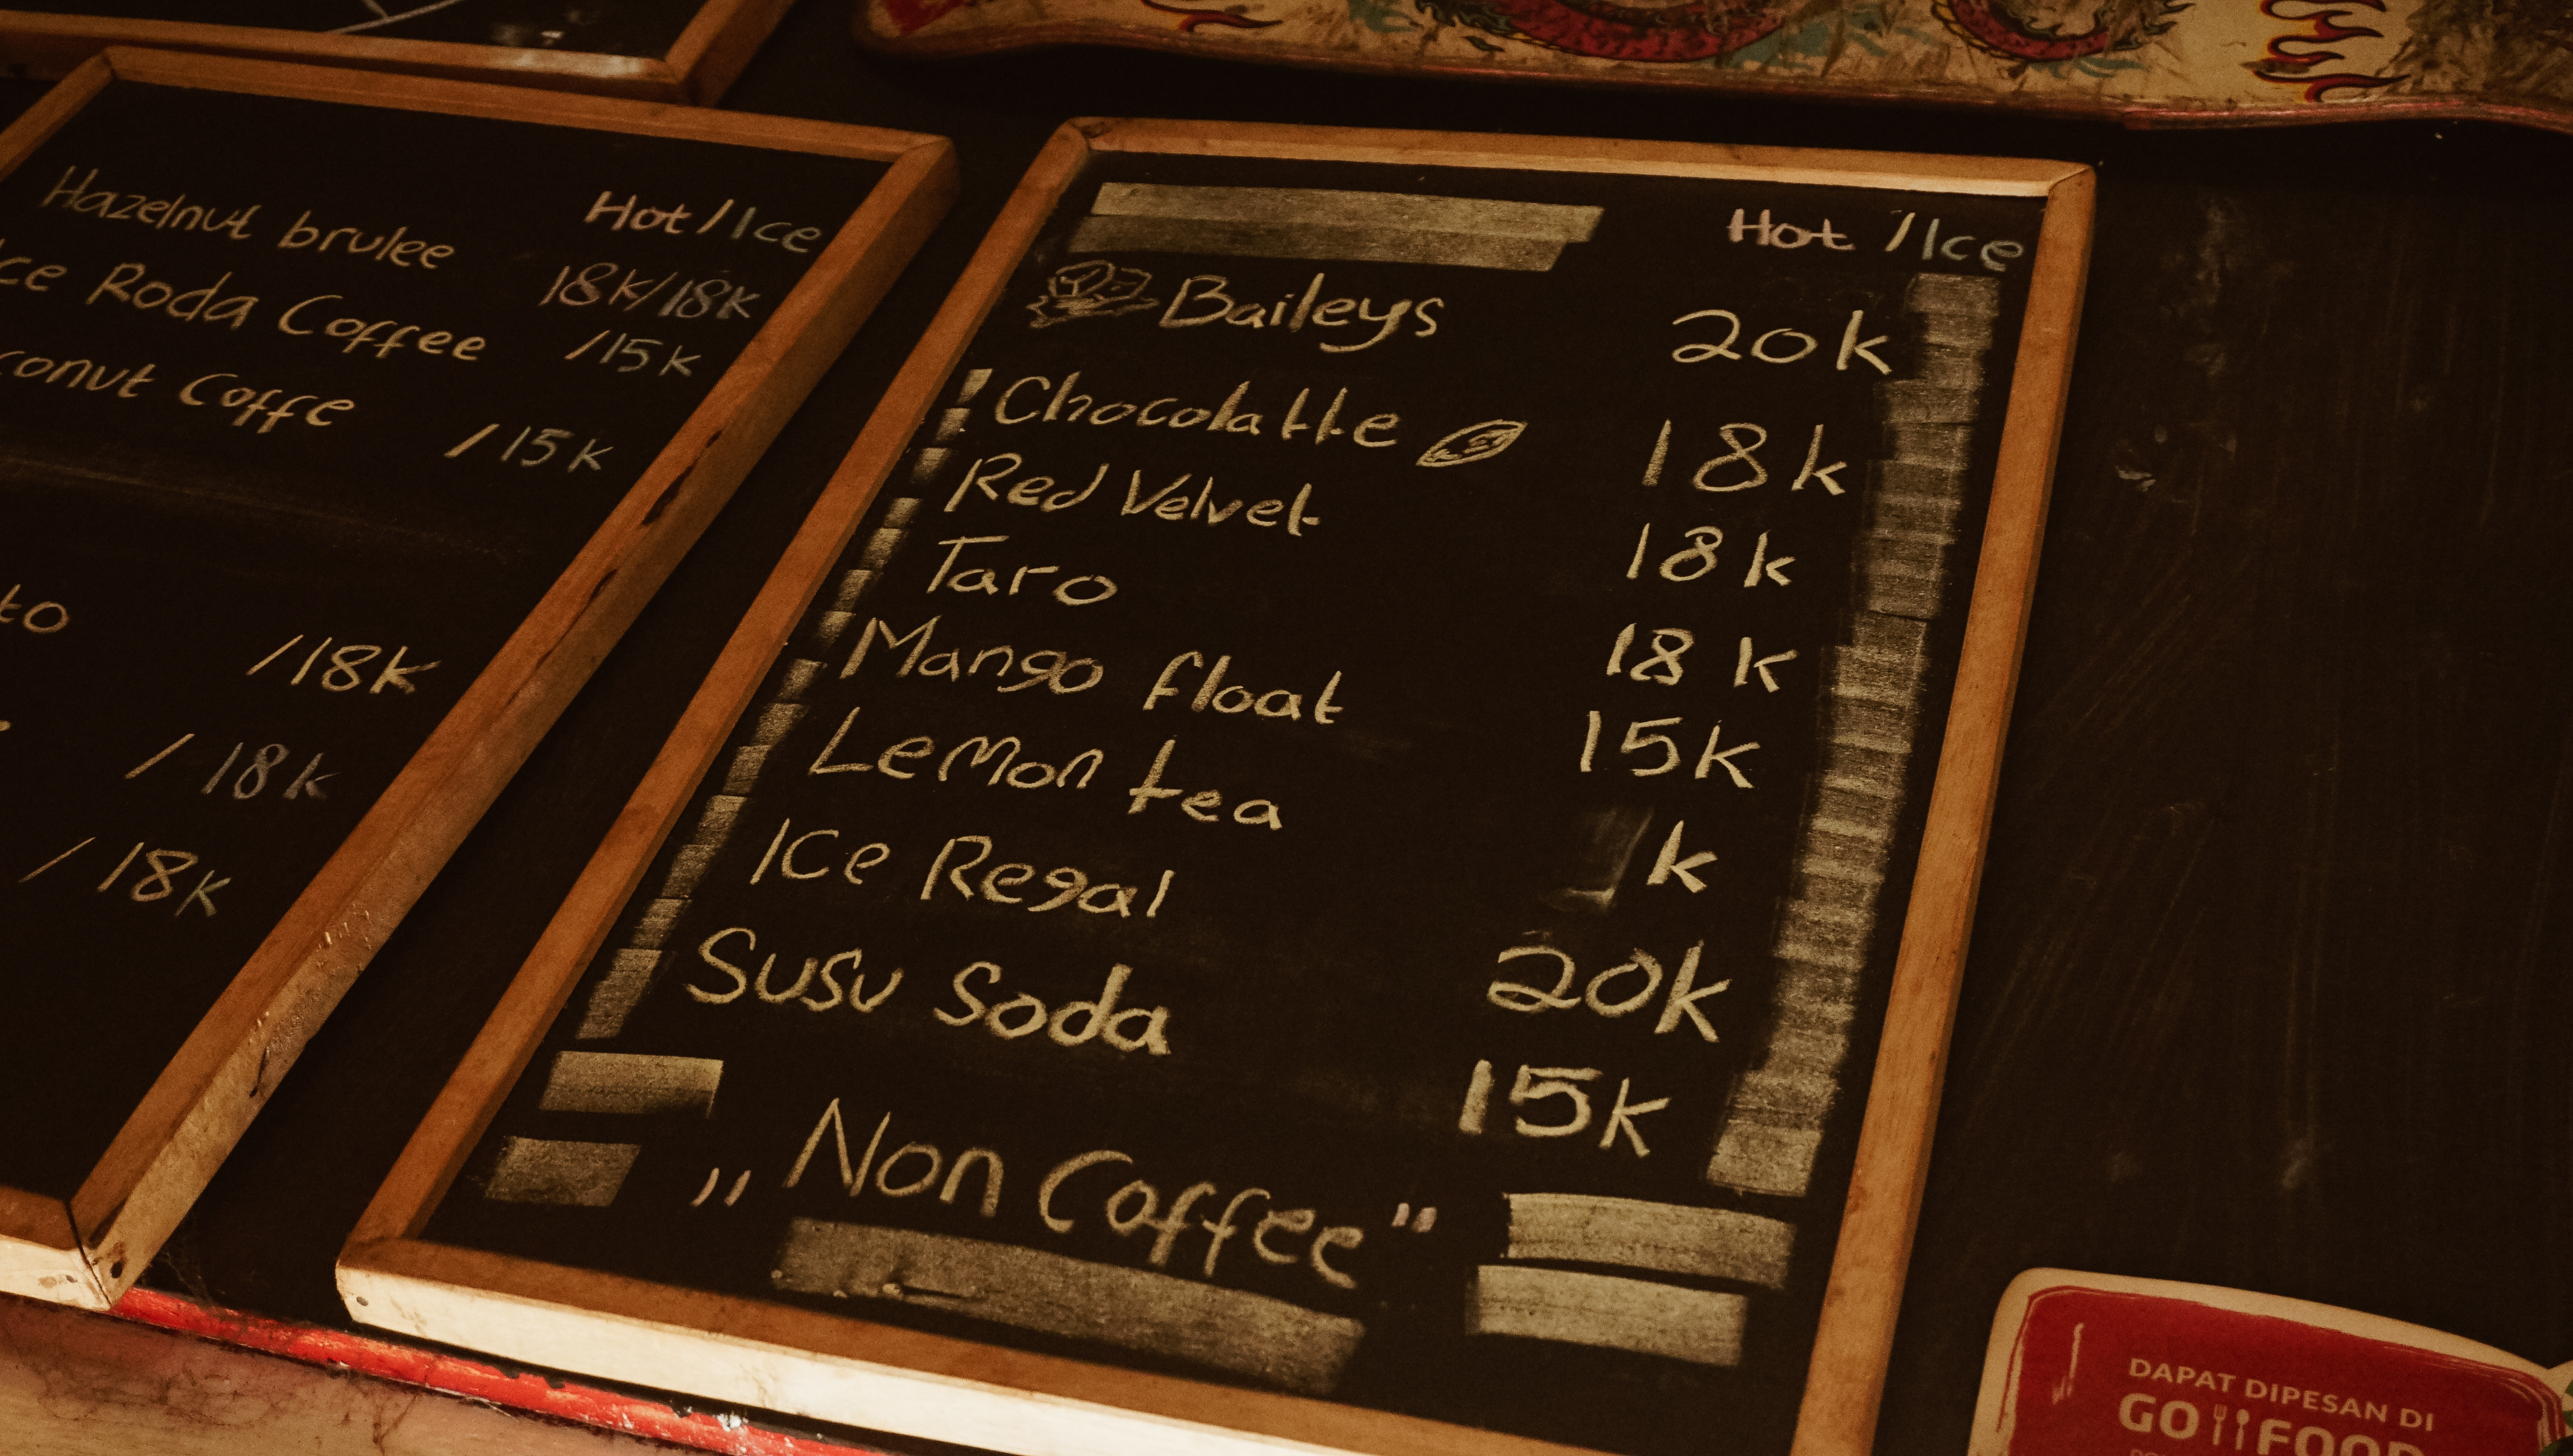 Hot/Ice
Hazelnut brulee 18k/18k
Ice Roda Coffee /15k
conut Coffe /15k
to /18k
/ 18k
/ 18k
Hot /Ice
Baileys 20k
Chocolatte 18k
Red Velvet 18k
Taro 18 k
Mango float 15k
Lemon tea k
Ice Regal 20k
Susu Soda 15k
,, Non Coffee "
DAPAT DIPESAN DI
GO FOOD